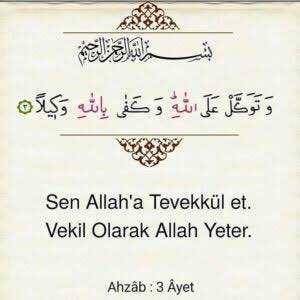 بِسْمِ اللهِ الرَّحْمٰنِ الرَّحِيمِ
وَ تَوَكَّلْ عَلَى اللهِ وَ كَفٰى بِاللهِ وَكِيلاً ﴿٣﴾
Sen Allah'a Tevekkül et.
Vekil Olarak Allah Yeter.
Ahzâb : 3 Âyet